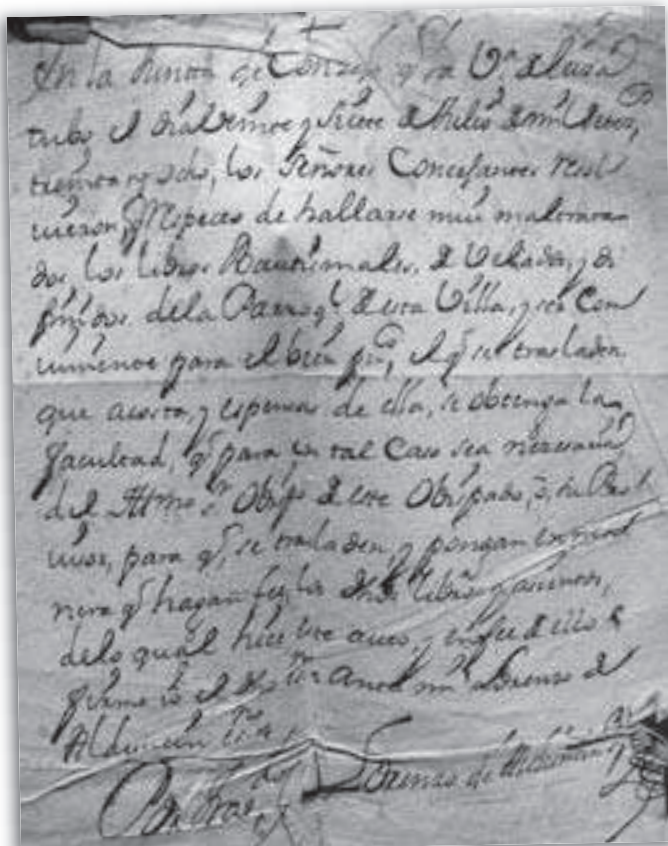 En la Junta de Concejo q.e la V.a de Lesa
tubo el dia veinte y siete de Julio de mil setez.
treinta y ocho, los Señores Concejantes resol
vieron, q. respecto de hallarse mui maltrata
dos los libros Bautismales, de Velados, y di
funtos de la Parroq.l de esta Villa, y ser con
veniente para el bien pu.co el q.e se trasladen
que a costa, y espensas de ella, se obtenga la
facultad, q.e para en tal caso sea necesaria
del Ill.mo S.r Obispo de este Obispado, ô, su
para q.e se trasladen, y pongan en
nera q.e hagan fee, los dhos libros y asientos,
de lo qual hice este auto, y en fee de ello
firmé io el Lorenzo de
Alduncin
Lorenzo de Alduncin